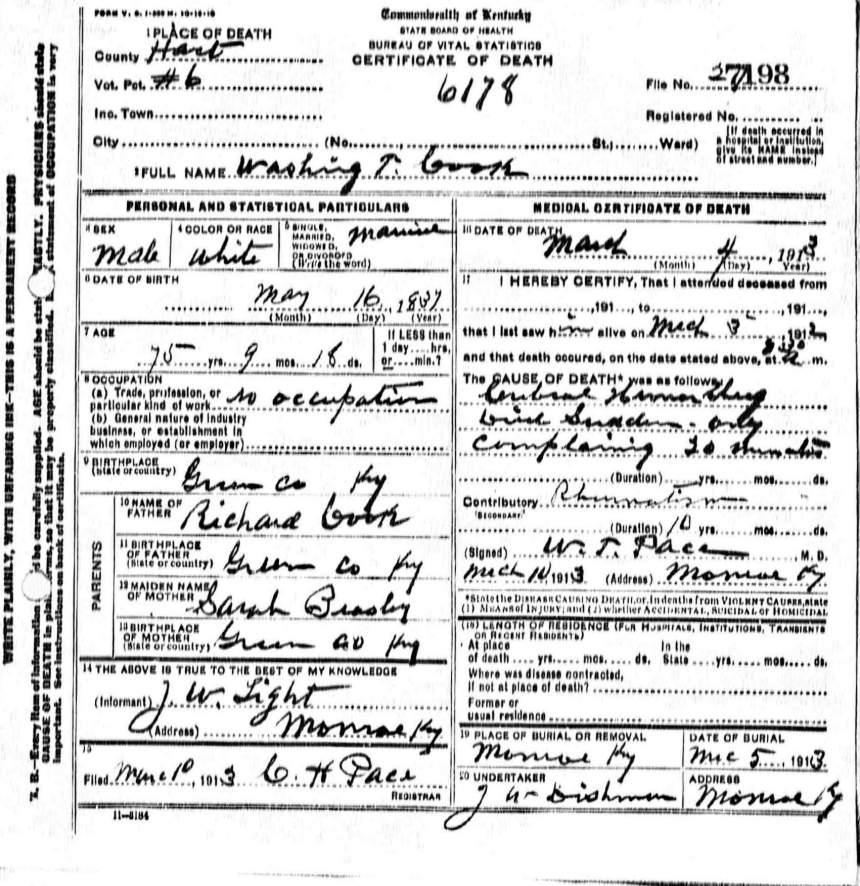 FORM V. S. 1-300 M. 10-15-10
Commonwealth of Kentucky
STATE BOARD OF HEALTH
BUREAU OF VITAL STATISTICS
CERTIFICATE OF DEATH
1 PLACE OF DEATH
County Hart
Vot. Pct. #6
6178
File No. 7198
Inc. Town
Registered No.
City (No. St.; Ward)
[If death occurred in a hospital or institution, give its NAME instead of street and number.]
2 FULL NAME Washing T. Cook
PERSONAL AND STATISTICAL PARTICULARS
3 SEX
Male
4 COLOR OR RACE
White
5 SINGLE, MARRIED, WIDOWED, OR DIVORCED
(Write the word)
6 DATE OF BIRTH
May 16, 1837
(Month) (Day) (Year)
7 AGE
75 yrs. 9 mos. 18 ds.
If LESS than
1 day....hrs.
or....min.?
8 OCCUPATION
(a) Trade, profession, or
particular kind of work no occupation
(b) General nature of industry
business, or establishment in
which employed (or employer)
9 BIRTHPLACE
(State or country)
Green co Ky
PARENTS
10 NAME OF
FATHER
Richard Cook
11 BIRTHPLACE
OF FATHER
(State or country)
Green co Ky
12 MAIDEN NAME
OF MOTHER
Sarah Beasley
13 BIRTHPLACE
OF MOTHER
(State or country)
Green co Ky
14 THE ABOVE IS TRUE TO THE BEST OF MY KNOWLEDGE
(Informant) J. W. Light
(Address) Monroe Ky
15
Filed Marc 10, 1913 C. H Pace
REGISTRAR
11-5184
MEDICAL CERTIFICATE OF DEATH
16 DATE OF DEATH
March 4, 1913
(Month) (Day) Year)
17 I HEREBY CERTIFY, That I attended deceased from
,191 , to ,191 ,
that I last saw him alive on Mch 3 191
and that death occured, on the date stated above, at m.
The CAUSE OF DEATH* was as follows:
Cerebral
Died Sudden - only
complaining 20 minutes
(Duration) yrs. mos. ds.
Contributory Rheumatism
"SECONDARY"
(Duration) 10 yrs. mos. ds.
(Signed) W. T. Pace M. D.
Mch 10 1913 (Address) Monroe Ky
*State the DISEASE CAUSING DEATH, or, in deaths from VIOLENT CAUSES, state
(1) MEANS OF INJURY; and (2) whether ACCIDENTAL, SUICIDAL or HOMICIDAL
(18) LENGTH OF RESIDENCE (FOR HOSPITALS, INSTITUTIONS, TRANSIENTS
OR RECENT RESIDENTS)
At place In the
of death yrs. mos. ds. State yrs. mos. ds.
Where was disease contracted,
If not at place of death?
Former or
usual residence
19 PLACE OF BURIAL OR REMOVAL
Monroe Ky
DATE OF BURIAL
5, 1913
20 UNDERTAKER
J W Dishman
ADDRESS
Monroe Ky
WRITE PLAINLY, WITH UNFADING INK—THIS IS A PERMANENT RECORD